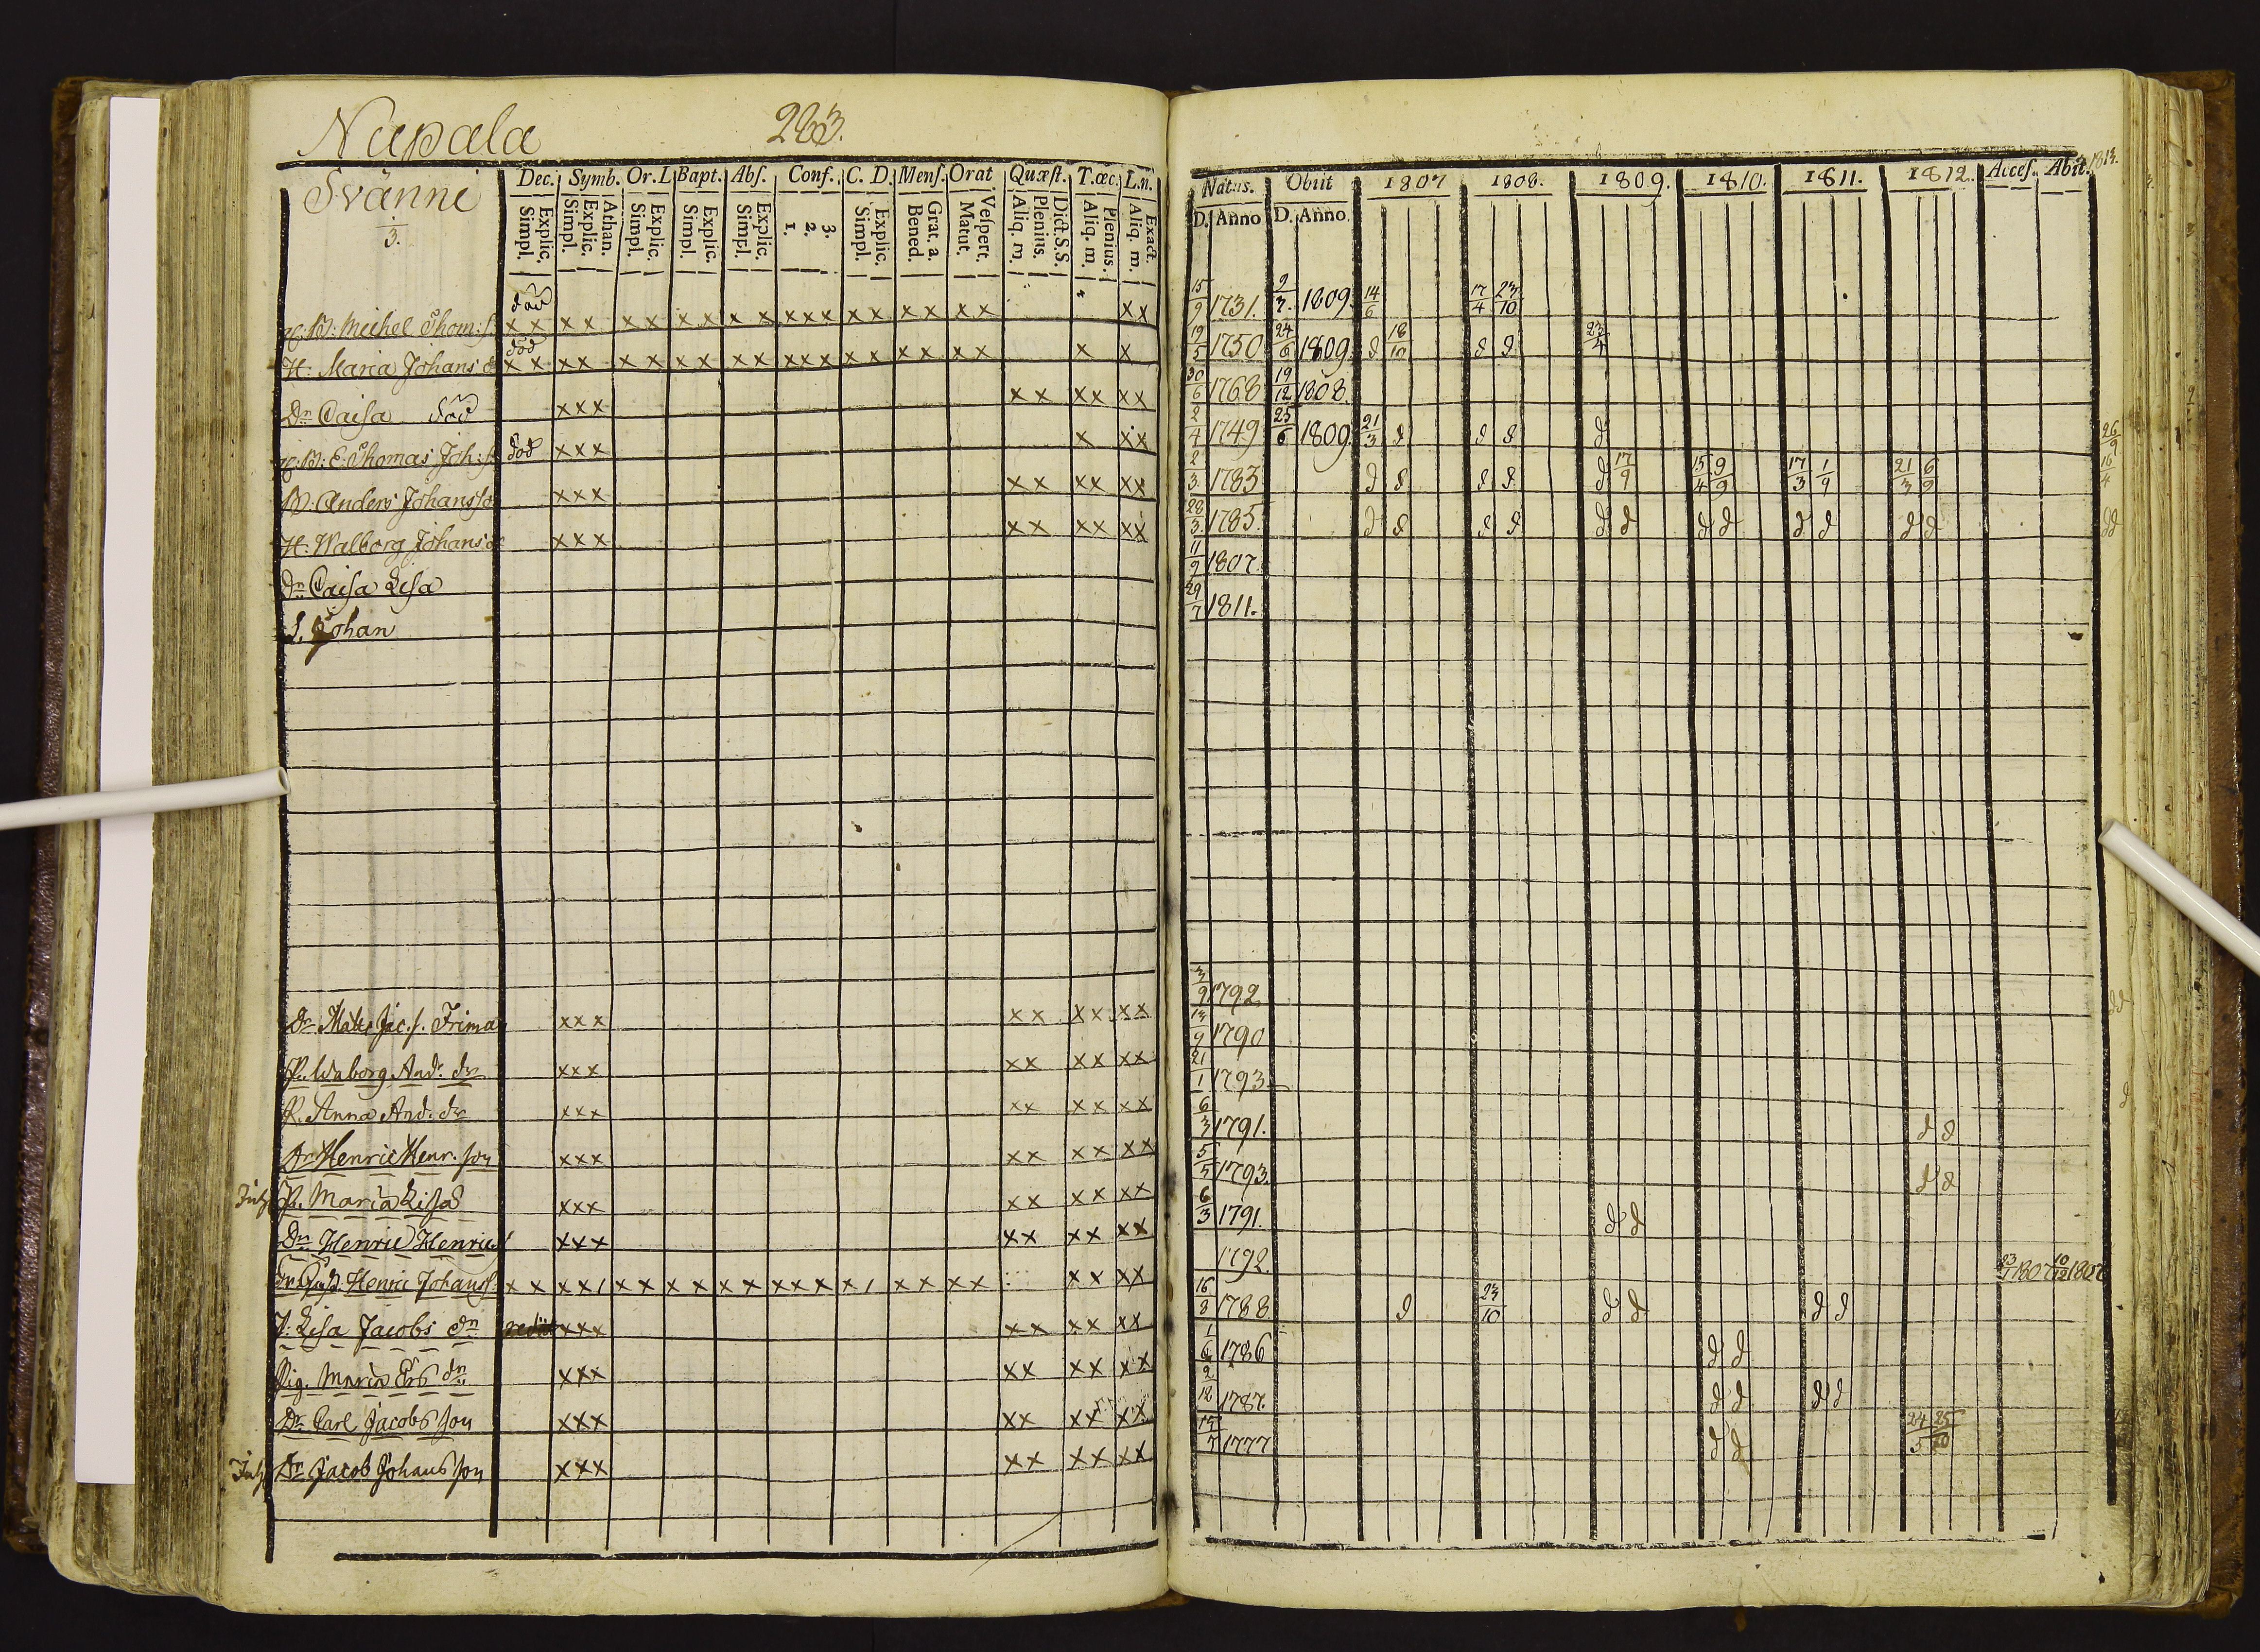 Nupala 263.
Svänni
3.
Dec. Symb. Or. L Bapt. Abſ. Conf. C. D. Menſ. Orat. Quæſt. T.œc. L.n.
Explic. Simpl. Athan. Explic. Simpl. Explic. Simpl. Explic. Simpl. Explic. Simpl. 3. 2. 1. Explic. Simpl. Grat. a. Bened. Veſpert. Matut. Dict. S.S. Plenius. Aliq. m. Plenius. Aliq. m. Exact. Aliq. m.
Natus. Obiit 1807 1808. 1809. 1810. 1811. 1812. Acceſ. Abit. 1813.
D. Anno D. Anno
Michel Thom: x x x x x x x x x x x x x x x x x x x x x x x 15/9 1731. 1809. 14/6 17/4 23/10
död
H: Maria Johans x x x x x x x x x x x x x x x x x x x x x 19/5 1750 24/6 1809 d 18/10 d d 23/4
Dr Caisa död x x x x x x x x x 30/6 1768 19/12 1808.
E: Thomas Joh: död x x x x x x 2/4 1749 25/6 1809. 21/3 d d d d 26/9
Anders Johanss x x x x x x x x x 2/3 1783 d d d d d 17/9 15/4 9/9 17/3 1/9 21/3 6/9 16/4
H: Walborg Johans x x x x x x x x x 28/3 1785 d d d d d d d d d d d d dd
Dr Caisa Lisa 1807.
S. Johan 29/7 1811.
Dr. Matts Jac. s. Frima x x x x x x x x x 3/9 1792 dd
P. Waborg And. dr x x x x x x x x x 1790
P. Anna And. dr x x x x x x x x x 21/1 1793 d
Dr Henric Henr. son x x x x x x x x x 6/3 1791. d d
P. Maria Lisa x x x x x x x x x 5/5 1793 d d
Dr Henric Henric x x x x x x x x x 6/3 1791. d d
Henric Johanss x x x x / x x x x x x x x x x / x x x x x x x x 1792. 1807 10/12 1807
P: Lisa Jacobs dr x x x x x x x x x 1788. d 23/10 d d d d
Pig. Maria x x x x x x x x x 1786 d d
Dr Carl Jacobs son x x x x x x x x x 2/12 1787. d d d d
Dr Jacob Johans son x x x x x x x x x 1777 d d 24/5 25/10